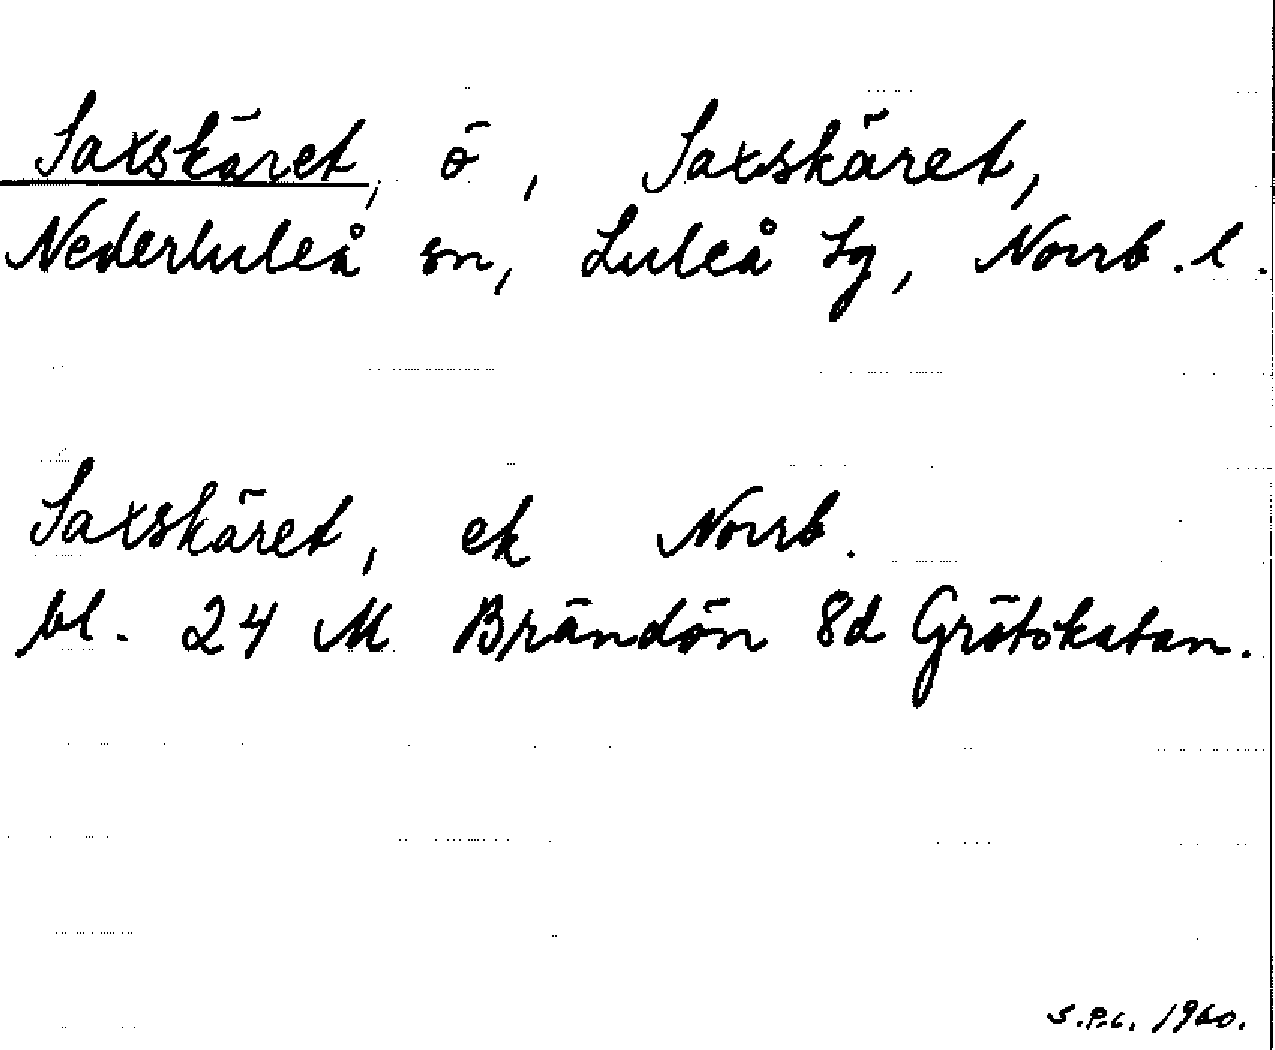 Saxskäret, ö, Saxskäret,
Nederluleå sn, Luleå tg, Norrb. l.
Saxskäret, ek Norrb.
bl. 24 M Brändön 8d Gråtökatan.
S.P.C. 1960.